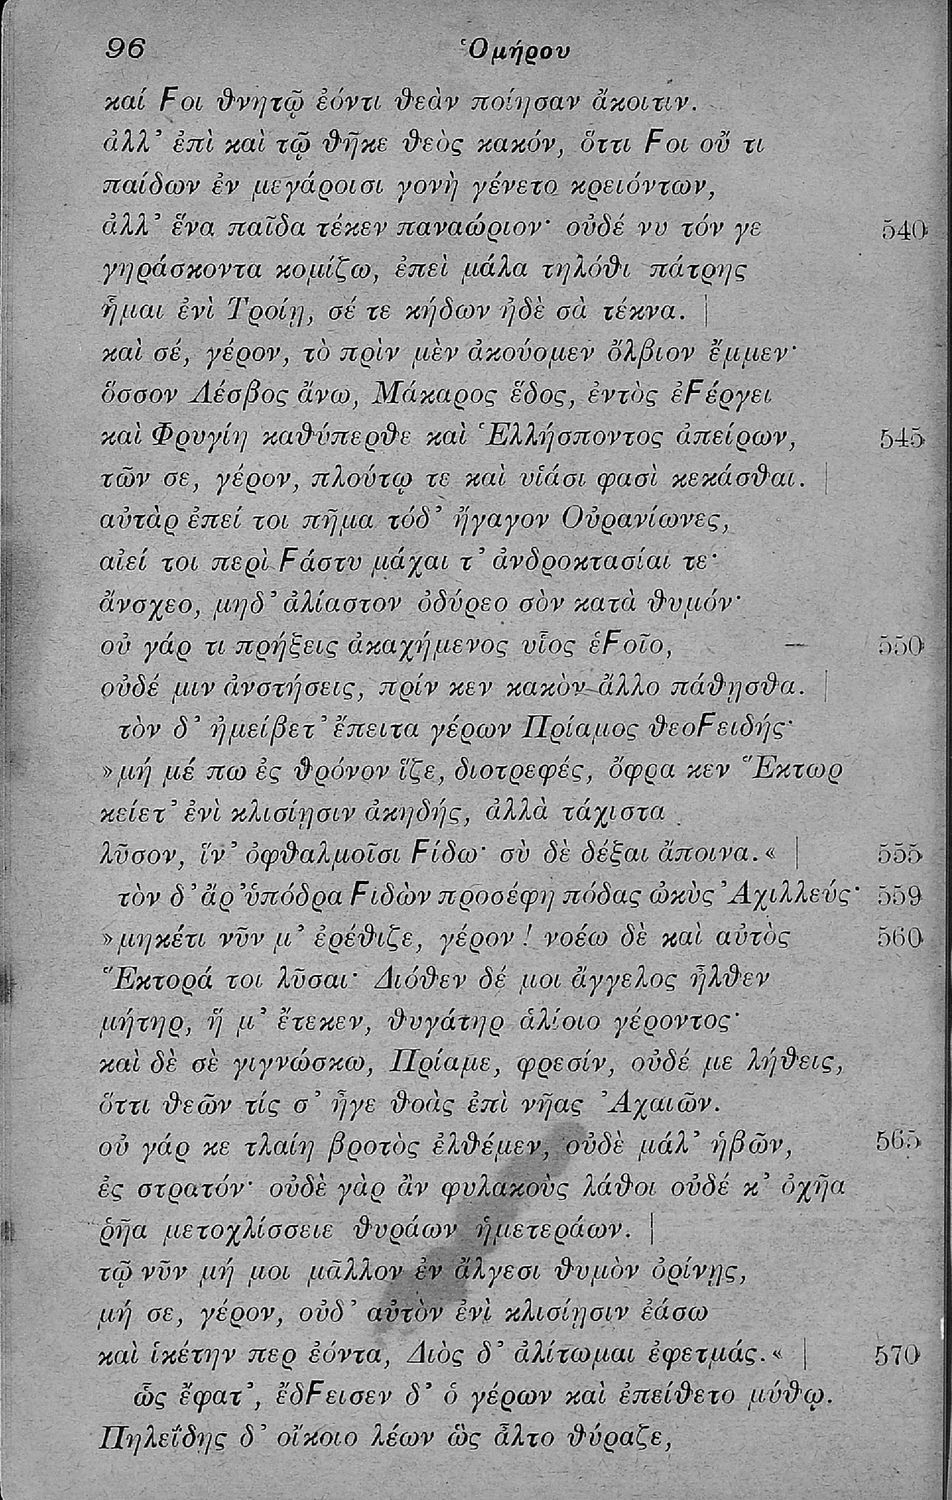 96 Ὁμήρου
καί Ϝοι θνητῷ ἐόντι θεὰν ποίησαν ἄκοιτιν.
ἀλλ’ ἐπὶ καὶ τῷ θῆκε θεὸς κακόν, ὅττι Ϝοι οὔ τι
παίδων ἐν μεγάροισι γονὴ γένετο κρειόντων,
ἀλλ’ ἕνα παῖδα τέκεν παναώριον· οὐδέ νυ τόν γε 540
γηράσκοντα κομίζω, ἐπεὶ μάλα τηλόθι πάτρης
ἧμαι ἐνὶ Τροίῃ, σέ τε κήδων ἠδὲ σὰ τέκνα. |
καὶ σέ, γέρον, τὸ πρὶν μὲν ἀκούομεν ὄλβιον ἔμμεν·
ὅσσον Λέσβος ἄνω, Μάκαρος ἕδος, ἐντὸς ἐϜέργει
καὶ Φρυγίη καθύπερθε καὶ Ἑλλήσποντος ἀπείρων, 545
τῶν σε, γέρον, πλούτῳ τε καὶ υἱάσι φασὶ κεκάσθαι. |
αὐτὰρ ἐπεί τοι πῆμα τόδ’ ἤγαγον Οὐρανίωνες,
αἰεί τοι περὶ Ϝάστυ μάχαι τ’ ἀνδροκτασίαι τε·
ἄνσχεο, μηδ’ ἀλίαστον ὀδύρεο σὸν κατὰ θυμόν·
οὐ γάρ τι πρήξεις ἀκαχήμενος υἷος ἑϜοῖο, — 550
οὐδέ μιν ἀνστήσεις, πρίν κεν κακὸν ἄλλο πάθησθα. |
τὸν δ’ ἠμείβετ’ ἔπειτα γέρων Πρίαμος θεοϜειδής·
»μή μέ πω ἐς θρόνον ἵζε, διοτρεφές, ὄφρα κεν Ἕκτωρ
κείετ’ ἐνὶ κλισίῃσιν ἀκηδής, ἀλλὰ τάχιστα
λῦσον, ἵν’ ὀφθαλμοῖσι Ϝίδω· σὺ δὲ δέξαι ἄποινα.« | 555
τὸν δ’ ἄρ’ ὑπόδρα Ϝιδὼν προσέφη πόδας ὠκὺς Ἀχιλλεύς· 559
»μηκέτι νῦν μ’ ἐρέθιζε, γέρον! νοέω δὲ καὶ αὐτὸς 560
Ἕκτορά τοι λῦσαι· Διόθεν δέ μοι ἄγγελος ἦλθεν
μήτηρ, ἥ μ’ ἔτεκεν, θυγάτηρ ἁλίοιο γέροντος·
καὶ δὲ σὲ γιγνώσκω, Πρίαμε, φρεσίν, οὐδέ με λήθεις,
ὅττι θεῶν τίς σ’ ἦγε θοὰς ἐπὶ νῆας Ἀχαιῶν.
οὐ γάρ κε τλαίη βροτὸς ἐλθέμεν, οὐδὲ μάλ’ ἡβῶν, 565
ἐς στρατόν· οὐδὲ γὰρ ἂν φυλακοὺς λάθοι οὐδέ κ’ ὀχῆα
ῥῆα μετοχλίσσειε θυράων ἡμετεράων. |
τῷ νῦν μή μοι μᾶλλον ἐν ἄλγεσι θυμὸν ὀρίνῃς,
μή σε, γέρον, οὐδ’ αὐτὸν ἐνὶ κλισίῃσιν ἐάσω
καὶ ἱκέτην περ ἐόντα, Διὸς δ’ ἀλίτωμαι ἐφετμάς.« | 570
ὣς ἔφατ’, ἔδϜεισεν δ’ ὁ γέρων καὶ ἐπείθετο μύθῳ.
Πηλεΐδης δ’ οἴκοιο λέων ὣς ἆλτο θύραζε,